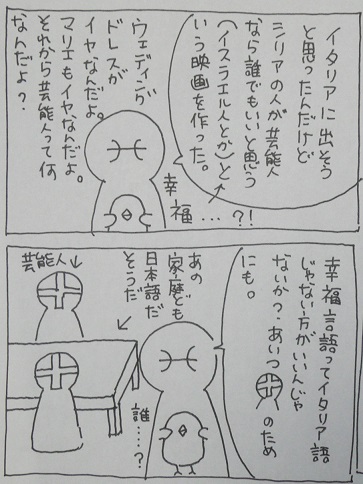 イタリアに出そう
と思ったんだけど
シリアの人が芸能人
なら誰でもいいと思う
(イスラエル人とか)と
いう映画を作った。
幸福…?!
ウェディング
ドレスが
イヤなんだよ。
マリエもイヤなんだよ。
それから芸能人って何
なんだよ?
幸福言語ってイタリア語
じゃない方がいいんじゃ
ないか?あいつのため
にも。
あの
家庭ども
日本語だ
そうだ
誰……?
芸能人